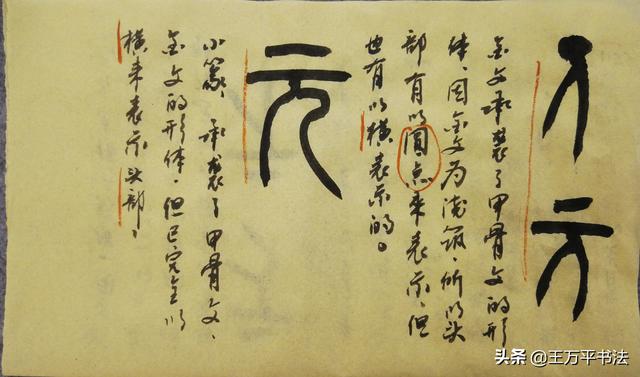 元
元
金文承袭了甲骨文的形
体、因金文为浇筑、所以头
部有以圆点来表示、但
也有以横表示的。
元
小篆、承袭了甲骨文、
金文的形体、但已完全以
横来表示头部。
头条 @王万平书法